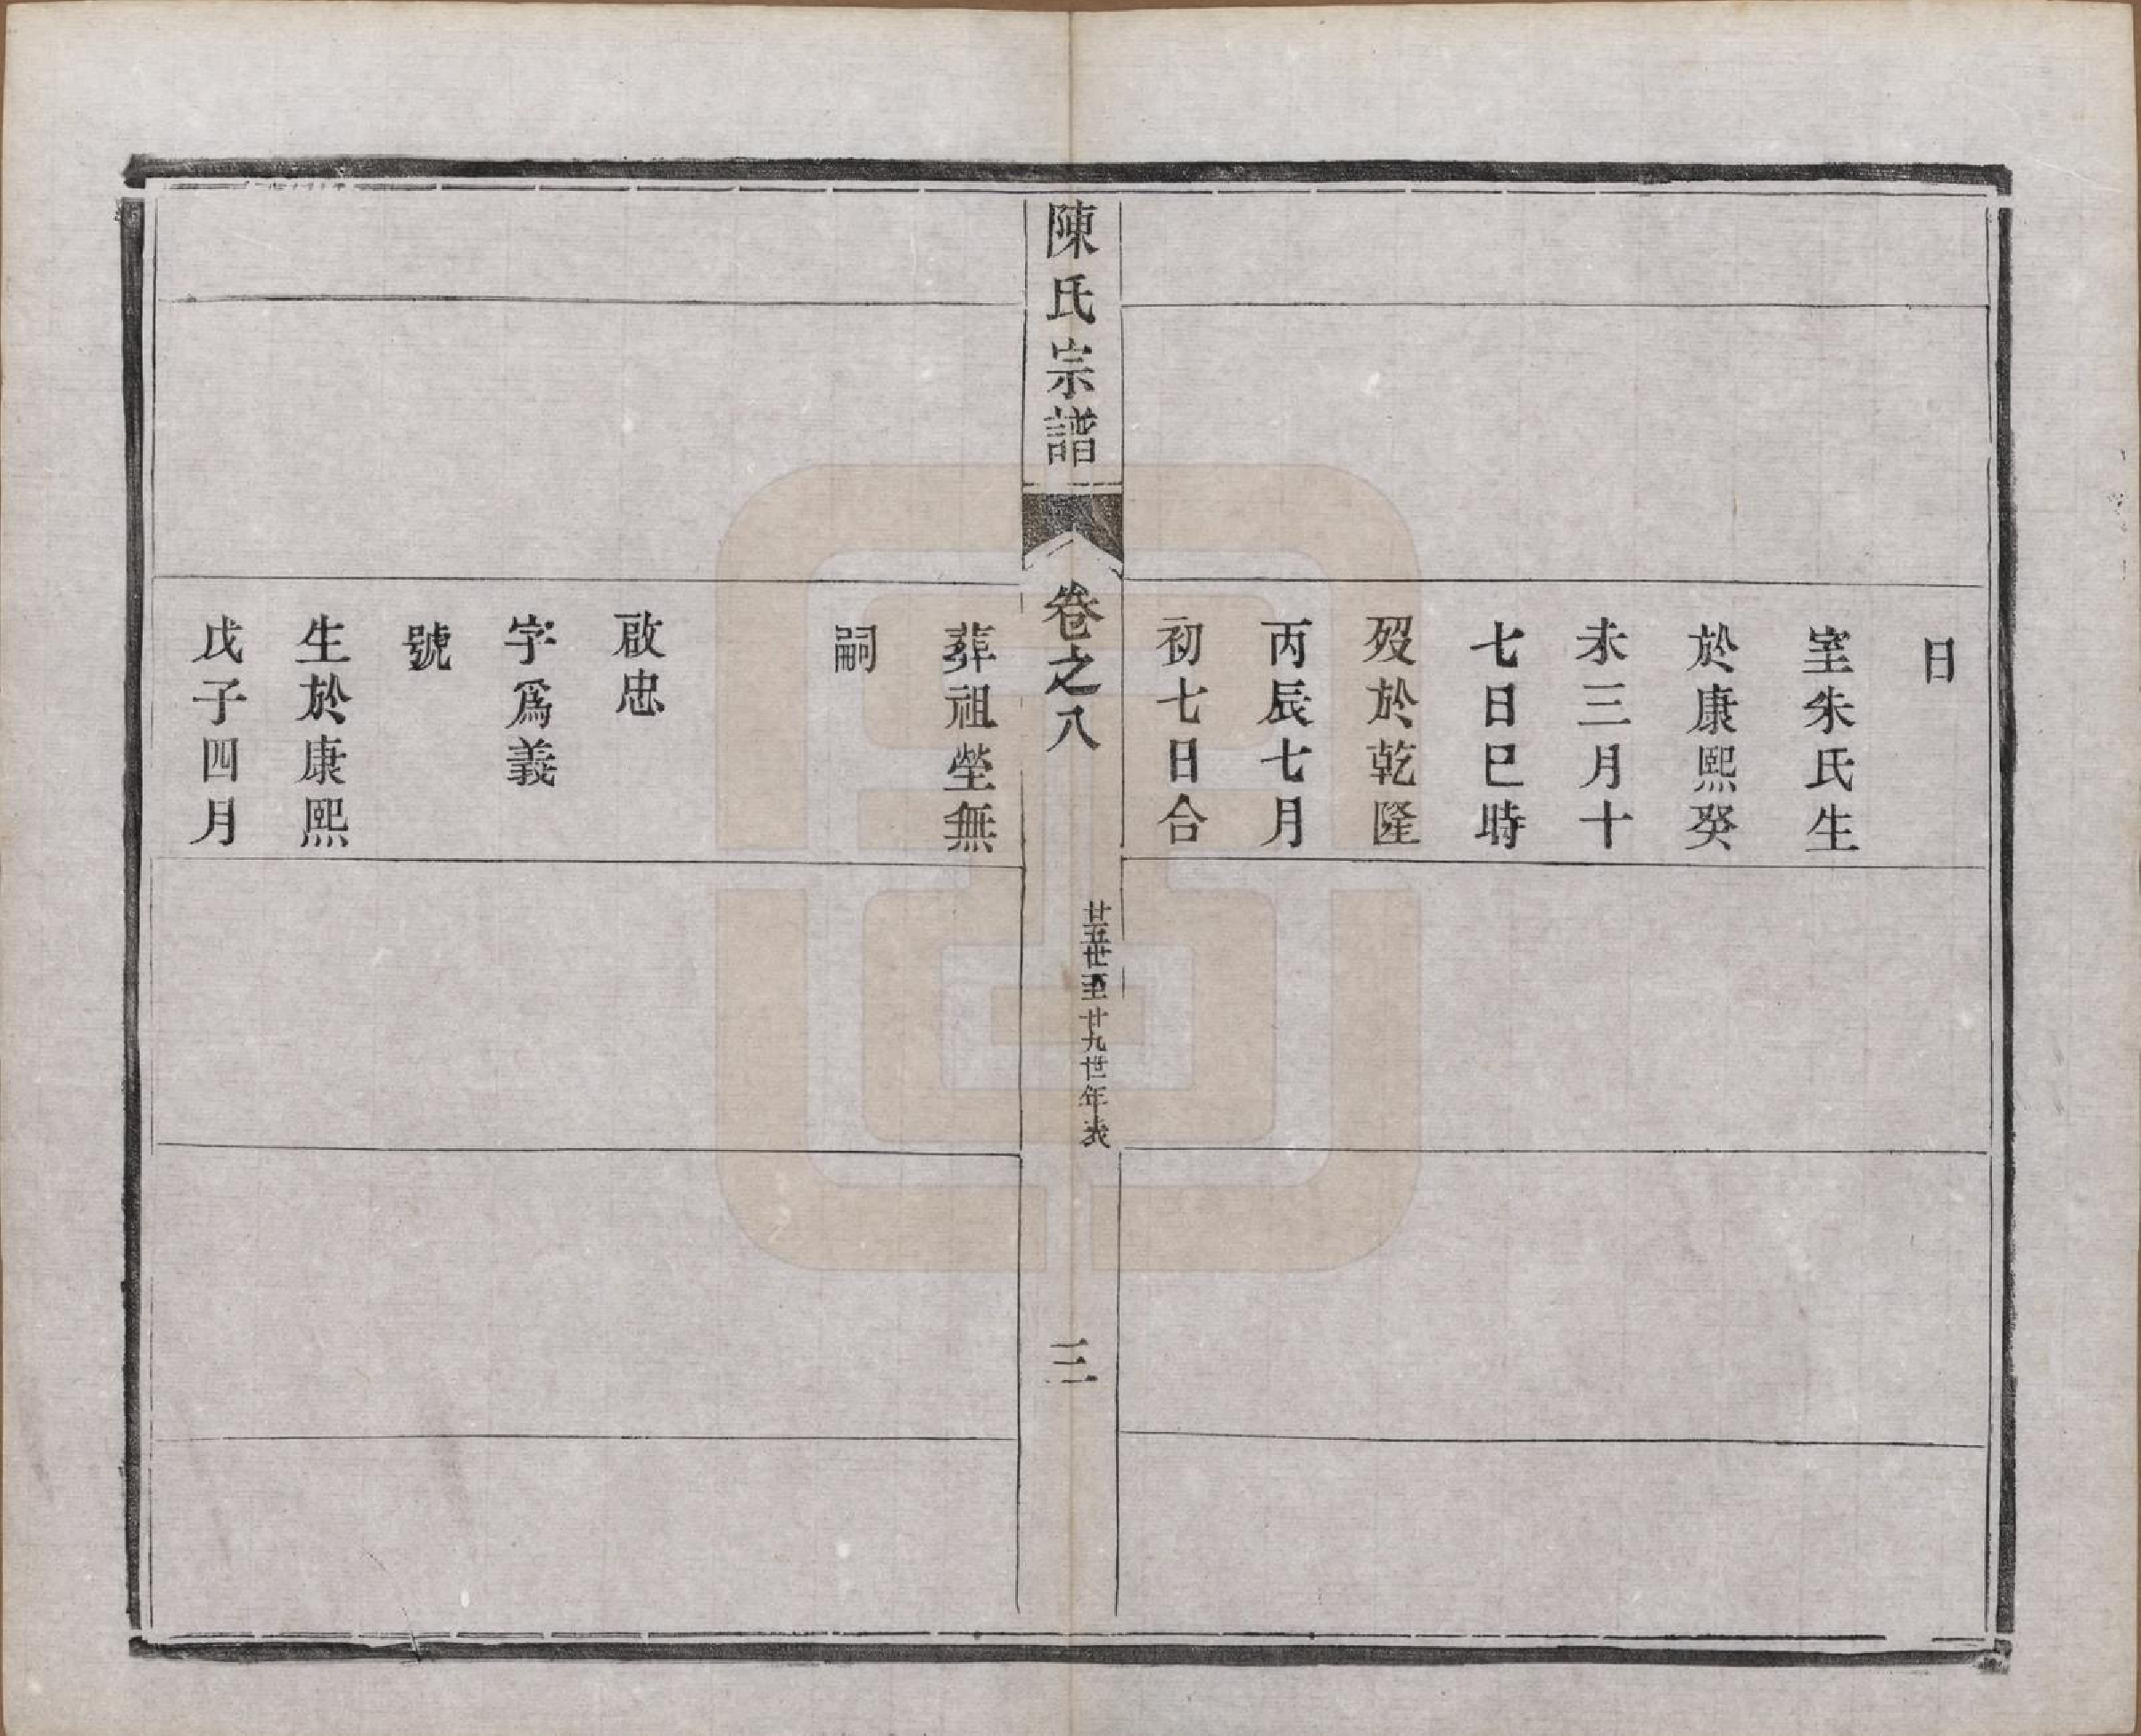 日
室朱氏生
於康熙癸
未三月十
七日巳時
歿於乾隆
丙辰七月
初七日合
陳氏宗譜
卷之八
廿五世至廿九世年表
三
葬祖塋無
嗣
啟忠
字爲義
號
生於康熙
戊子四月